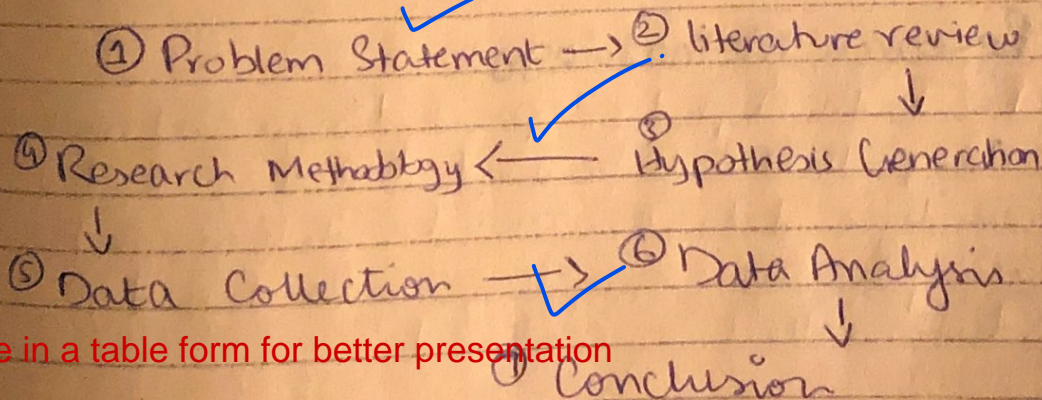 ① Problem Statement → ② literature review
↓
④ Research Methodology ← ③ Hypothesis Generation
↓
⑤ Data Collection → ⑥ Data Analysis
↓
in a table form for better presentation
⑦ Conclusion